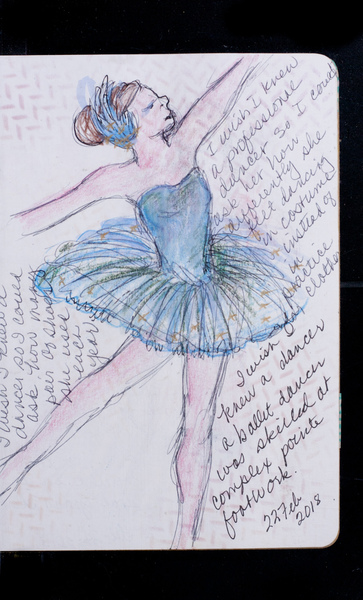 I wish I knew
a professional
dancer so I could
ask her how
differently she
felt dancing
in costume
instead of
in
practice
clothes
I wish I
knew a dancer
a ballet dancer
was skilled at
complex pointe
footwork.
22 Feb
2018
I wish I knew a
dancer so I could
ask how many
pair of shoes
she uses
each
year